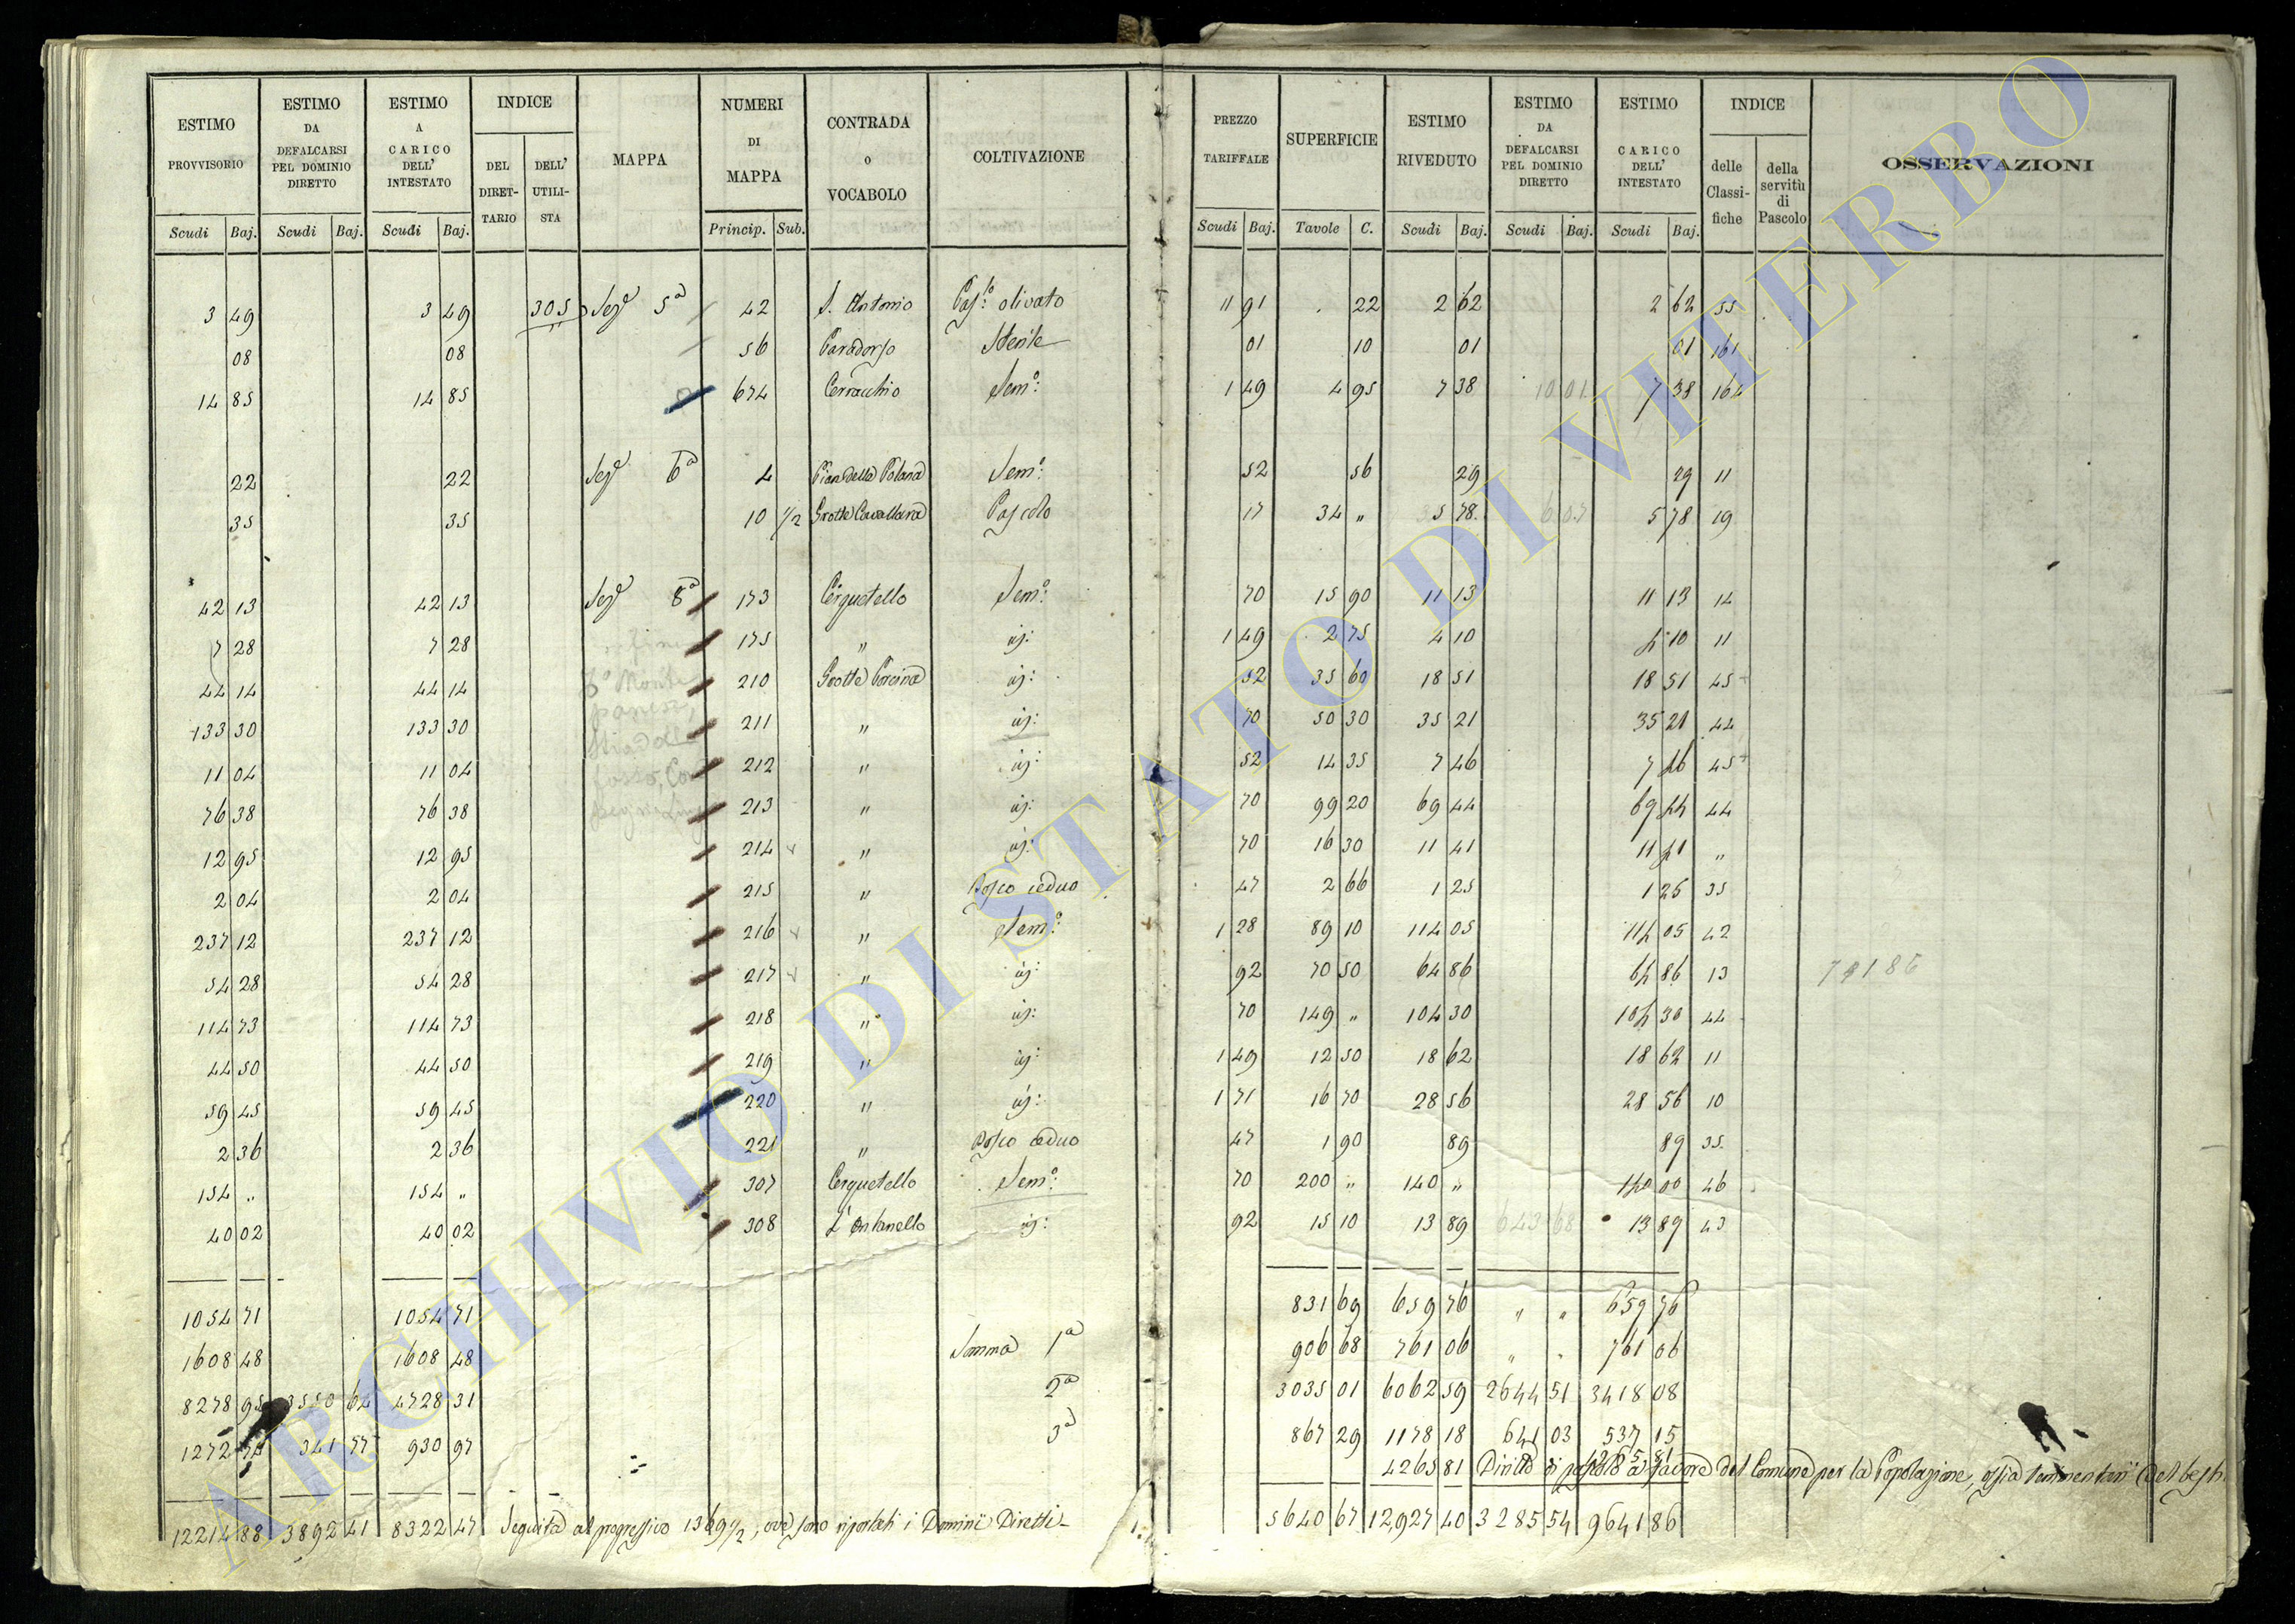 ESTIMO PROVVISORIO | ESTIMO DA DEFALCARSI PEL DOMINIO DIRETTO | ESTIMO A CARICO DELL' INTESTATO | INDICE | MAPPA | NUMERI DI MAPPA | CONTRADA o VOCABOLO | COLTIVAZIONE | PREZZO TARIFFALE | SUPERFICIE | ESTIMO RIVEDUTO | ESTIMO DA DEFALCARSI PEL DOMINIO DIRETTO | ESTIMO A CARICO DELL' INTESTATO | INDICE | OSSERVAZIONI
DEL DIRETTARIO | DELL' UTILISTA | delle Classifiche | della servitù di Pascolo
Scudi | Baj. | Scudi | Baj. | Scudi | Baj. | Princip. | Sub. | Scudi | Baj. | Tavole | C. | Scudi | Baj. | Scudi | Baj. | Scudi | Baj.
3 49 | 3 49 | 305 | Sez.e 5a | 42 | S. Antonio | Pas.lo olivato | 11 91 | 22 | 2 62 | 2 62 | 55
08 | 08 | 56 | Paradosso | Sterile | 01 | 10 | 01 | 01 | 161
14 85 | 14 85 | 674 | Cerracchio | Sem.o: | 1 49 | 4 95 | 7 38 | 10 01 | 7 38 | 164
22 | 22 | Sez.e 6a | 4 | Sem.o: | 52 | 56 | 29 | 29 | 11
35 | 35 | 10 1/2 | Grotte Cavallara | Pascolo | 17 | 34 " | 5 78 | 5 78 | 19
42 13 | 42 13 | Sez.e 8a | 173 | Cerquetello | Sem.o: | 70 | 15 90 | 11 13 | 11 13 | 14
7 28 | 7 28 | 175 | " | id: | 1 49 | 2 75 | 4 10 | 4 10 | 11
44 14 | 44 14 | 210 | Grotte Porcina | id: | 52 | 35 60 | 18 51 | 18 51 | 45
133 30 | 133 30 | 211 | " | id: | 70 | 50 30 | 35 21 | 35 21 | 44
11 04 | 11 04 | 212 | " | id: | 52 | 14 35 | 7 46 | 7 46 | 45
76 38 | 76 38 | 213 | " | id: | 70 | 99 20 | 69 44 | 69 44 | 44
12 95 | 12 95 | 214 | " | id: | 70 | 16 30 | 11 41 | 11 41 | "
2 04 | 2 04 | 215 | " | Bosco ceduo | 47 | 2 66 | 1 25 | 1 25 | 35
237 12 | 237 12 | 216 | " | Sem.o: | 1 28 | 89 10 | 114 05 | 114 05 | 42
54 28 | 54 28 | 217 | " | id: | 92 | 70 50 | 64 86 | 64 86 | 13
114 73 | 114 73 | 218 | " | id: | 70 | 149 " | 104 30 | 104 30 | 44
44 50 | 44 50 | 219 | " | id: | 1 49 | 12 50 | 18 62 | 18 62 | 11
59 45 | 59 45 | 220 | " | id: | 1 71 | 16 70 | 28 56 | 28 56 | 10
2 36 | 2 36 | 221 | " | Bosco ceduo | 47 | 1 90 | 89 | 89 | 35
154 " | 154 " | 307 | Cerquetello | Sem.o: | 70 | 200 " | 140 " | 140 00 | 46
40 02 | 40 02 | 308 | L'Ontanello | id: | 92 | 15 10 | 13 89 | 643 68 | 13 89 | 43
1054 71 | 1054 71 | 831 69 | 659 76 | " " | 659 76
1608 48 | 1608 48 | Somma 1a | 906 68 | 761 06 | " " | 761 06
8278 95 | 3550 64 | 4728 31 | 2a | 3035 01 | 6062 59 | 2644 51 | 3418 08
1272 74 | 341 77 | 930 97 | 3a | 867 29 | 1178 18 | 641 03 | 537 15
4265 81 | Diritto di pascolo a favore del Comune per la Popolazione, ossia
12214 88 | 3892 41 | 8322 47 | Seguita al progressivo 1369 1/2, ove sono riportati i Dominii Diretti- | 5640 67 | 12,927 40 | 3285 54 | 9641 86
ARCHIVIO DI STATO DI VITERBO